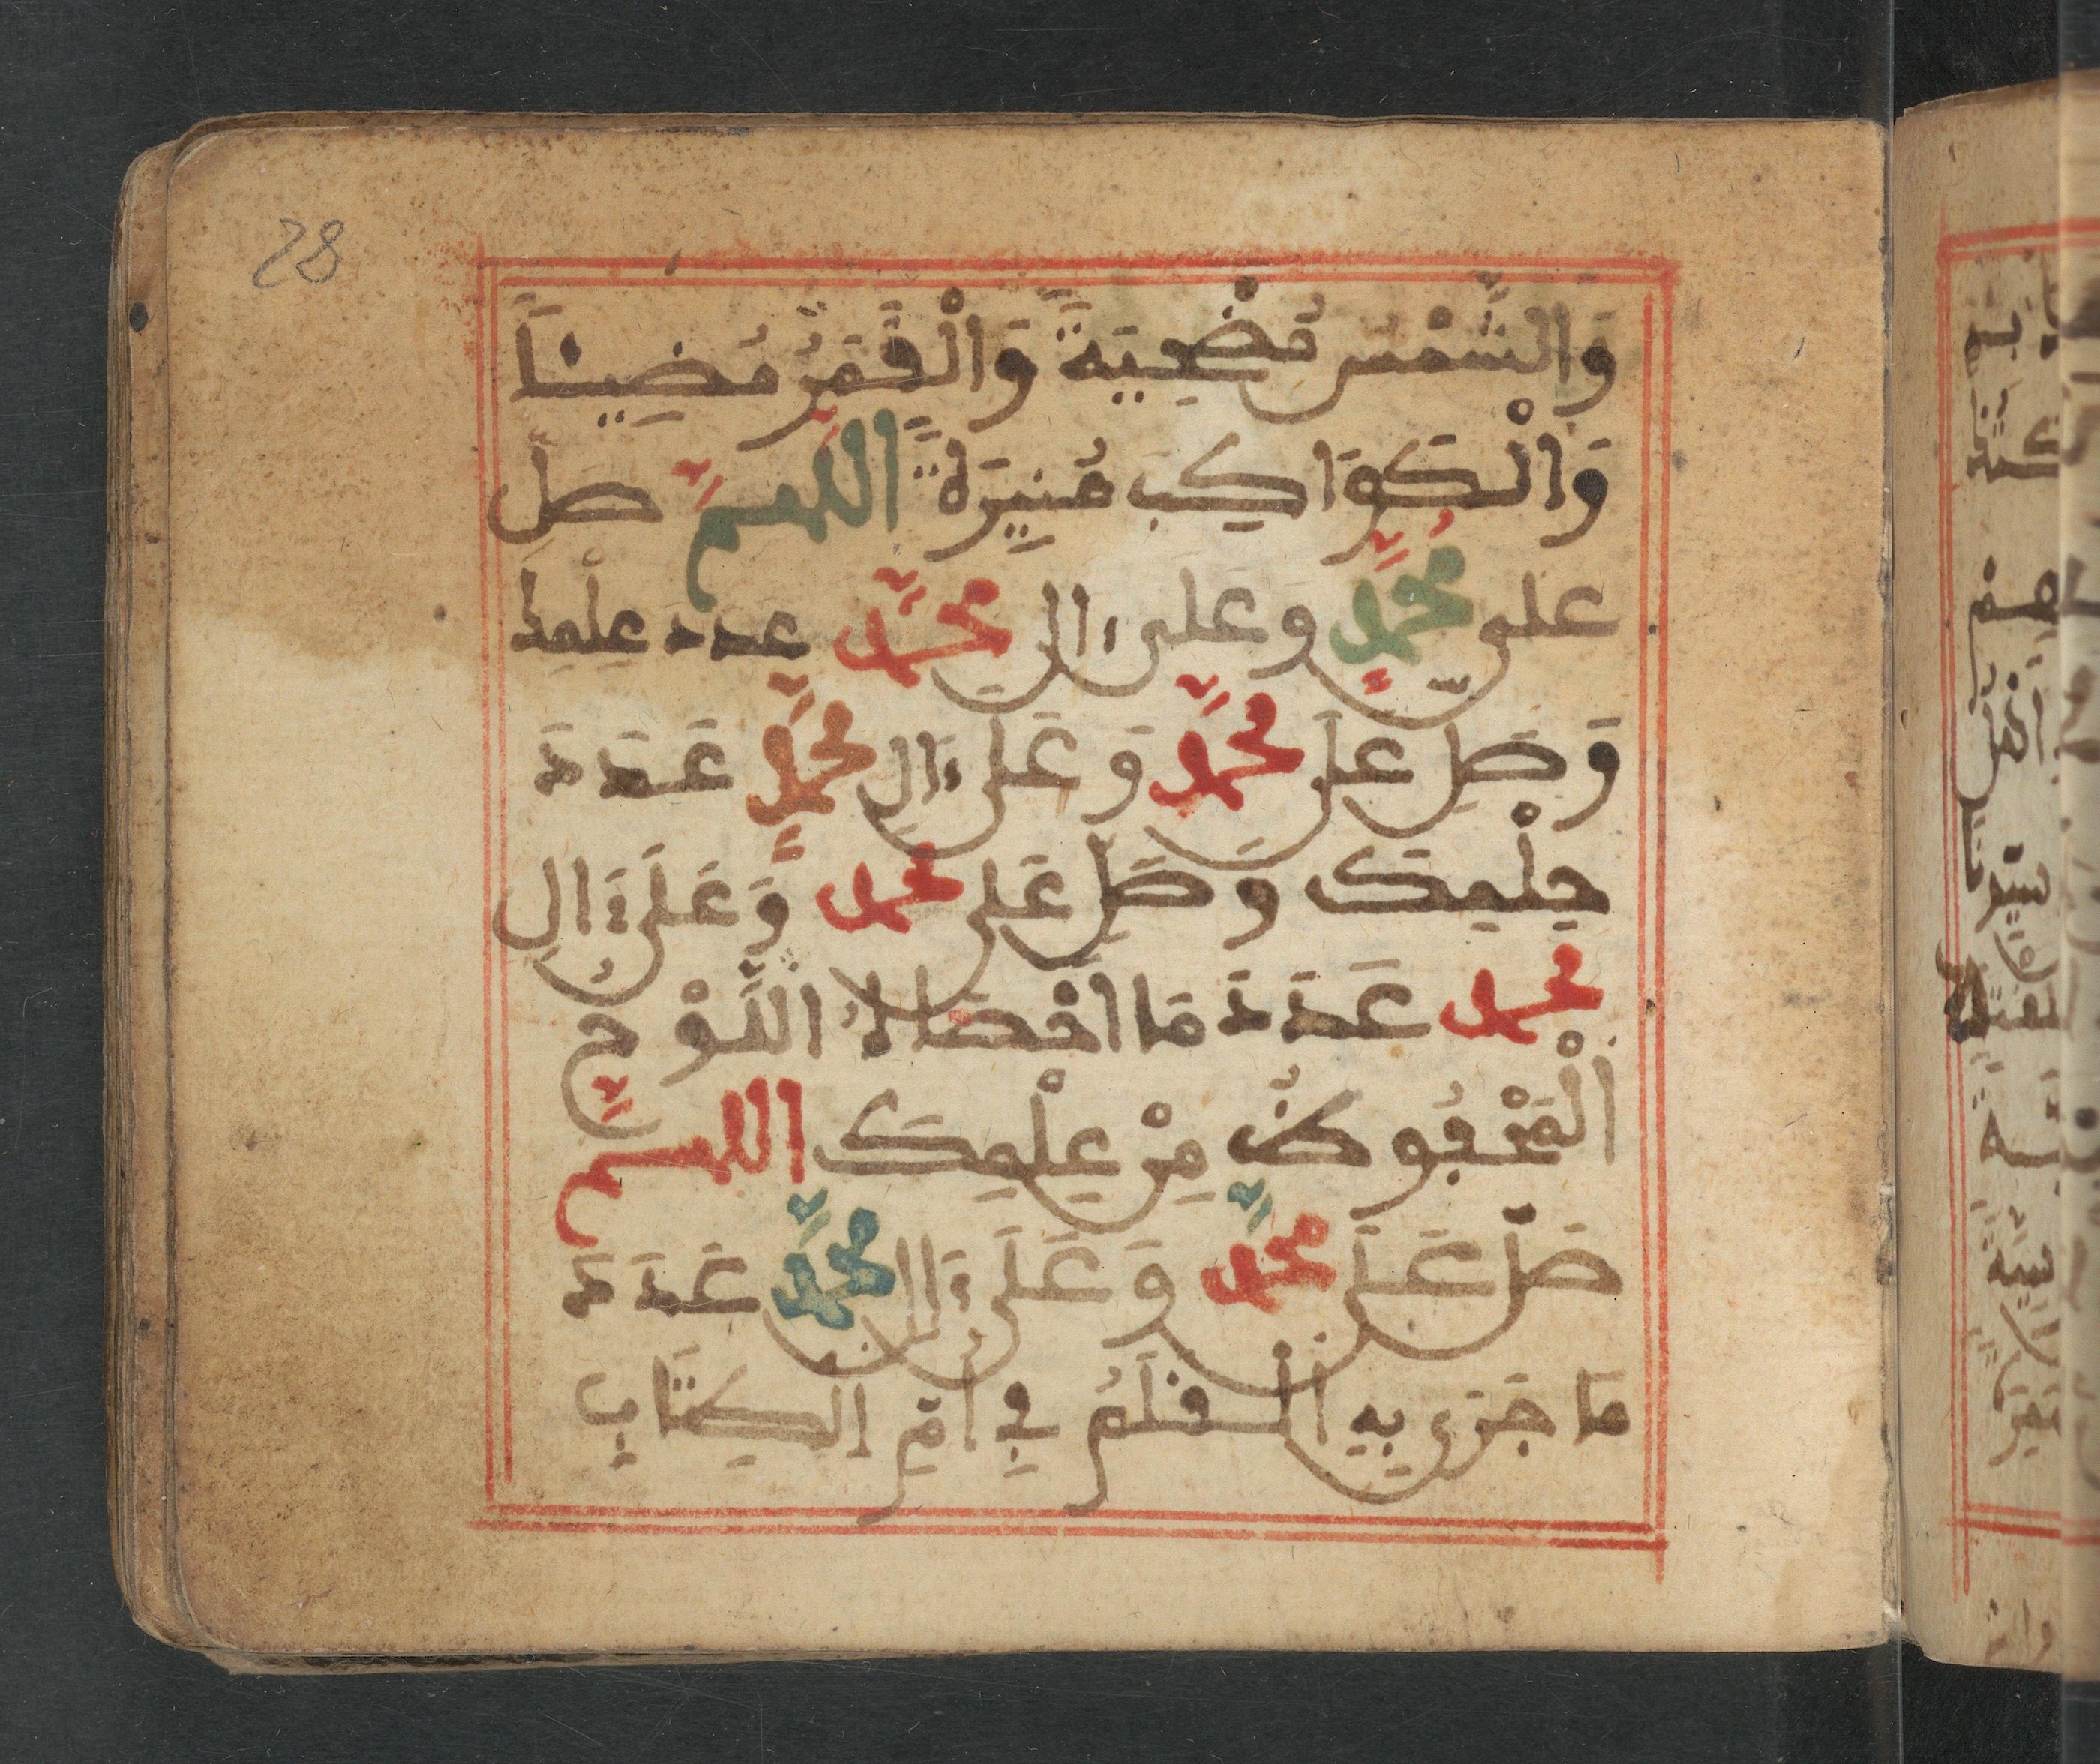 28
وَالشَّمْسُ مُضْحِيَةً وَالْقَمَرُ مُضِيئًا
وَالْكَوَاكِبَ مُنِيرَةً اللهم صَلِّ
على مُحَمَّدٍ وعَلى ءال محمَّد عدد علْمِدَ
وَصَلِ عَلى محمَّد وَعَلى ءَالِ محمَّدٍ عَدَدَ
حِلْمِكَ وَصَلِّ عَلى محمد وَعَلَى ءَالِ
محمد عَدَدَ مَا اَحْصَاهُ اللَّوْحُ
الْمَحْفُوظُ مِنْ عِلْمِكَ اللهمَّ
صَلِّ عَلَى محمَّد وَعَلَى ءَال محمَّد عَدَدَ
مَا جَرَى بِهِ الْقَلَمُ فِي أُمِّ الكِتَابِ